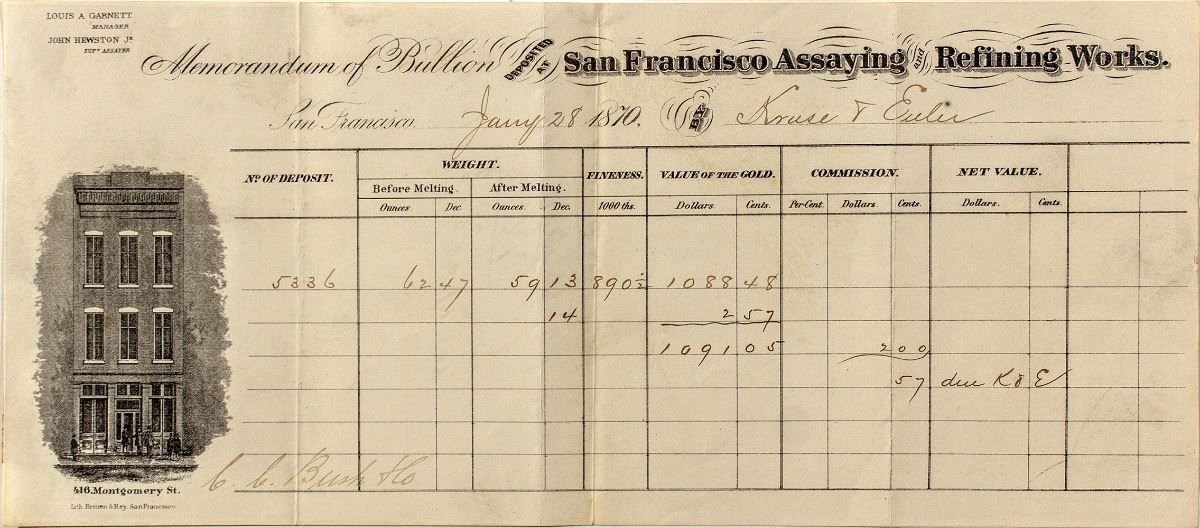 LOUIS A GARNETT
MANAGER
JOHN HEWSTON Jr.
SUPT. ASSAYER
Memorandum of Bullion DEPOSITED AT San Francisco Assaying and Refining Works.
San Francisco Jany 28 1870. BY Kruse & Euler
No. OF DEPOSIT. WEIGHT. FINENESS. VALUE OF THE GOLD. COMMISSION. NET VALUE.
Before Melting. After Melting.
Ounces. Dec. Ounces. Dec. 1000 ths. Dollars. Cents. Per Cent. Dollars. Cents. Dollars. Cents.
5336 62 47 59 13 890½ 1088 48
14 2 57
1091 05 2 00
57 due K & E
C. C. Bush & Co
416. Montgomery St.
Lith. Britton & Rey. San Francisco.